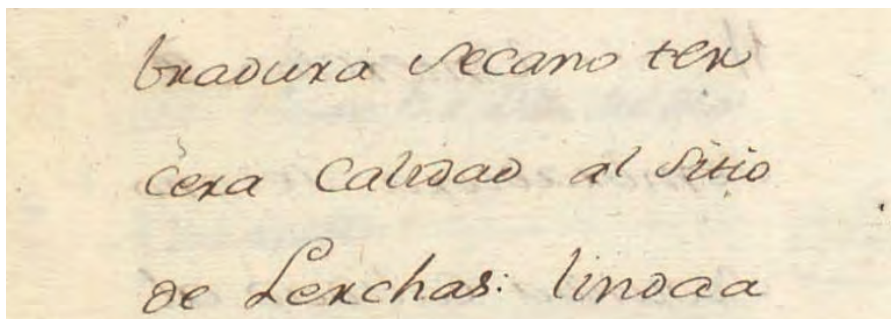 bradura secano ter
cera Calidad al sitio
de Lerchas: linda a